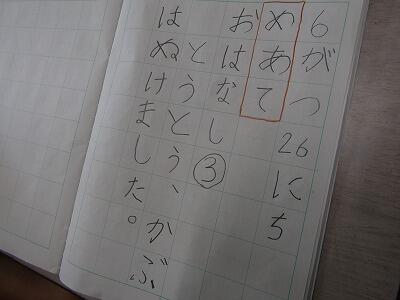 6がつ26にち
めあて
おはなし③
とうとう、かぶ
はぬけました。